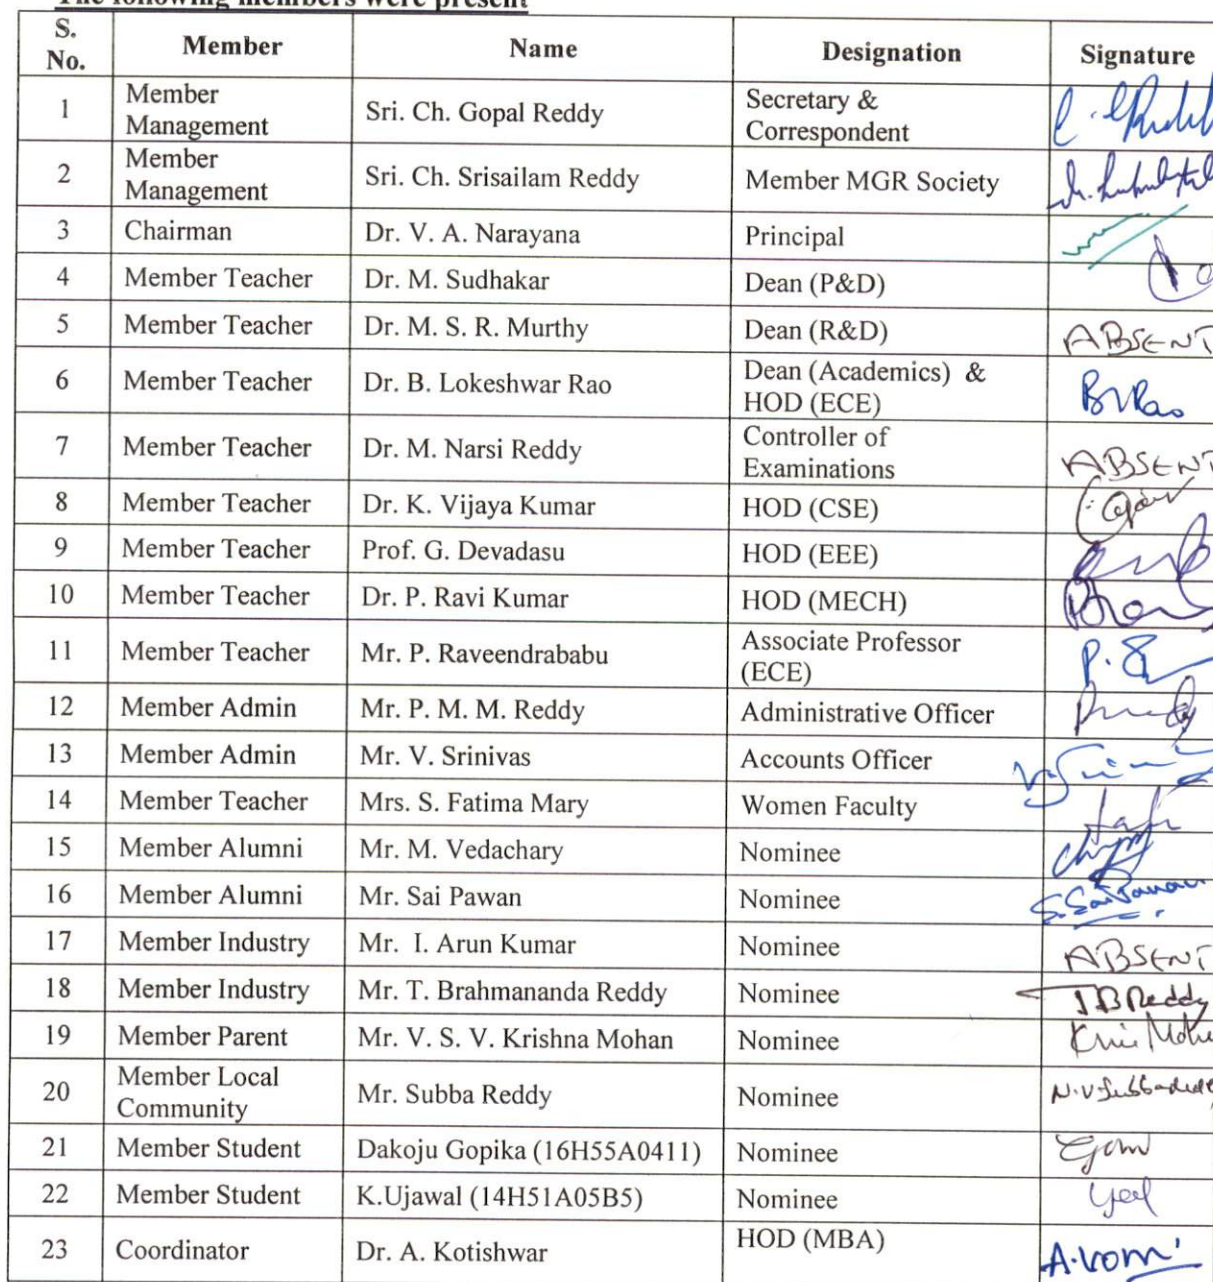 The following members were present
S. No. Member Name Designation Signature
1 Member Management Sri. Ch. Gopal Reddy Secretary & Correspondent
2 Member Management Sri. Ch. Srisailam Reddy Member MGR Society
3 Chairman Dr. V. A. Narayana Principal
4 Member Teacher Dr. M. Sudhakar Dean (P&D)
5 Member Teacher Dr. M. S. R. Murthy Dean (R&D) ABSENT
6 Member Teacher Dr. B. Lokeshwar Rao Dean (Academics) & HOD (ECE) BVRao
7 Member Teacher Dr. M. Narsi Reddy Controller of Examinations ABSENT
8 Member Teacher Dr. K. Vijaya Kumar HOD (CSE)
9 Member Teacher Prof. G. Devadasu HOD (EEE)
10 Member Teacher Dr. P. Ravi Kumar HOD (MECH)
11 Member Teacher Mr. P. Raveendrababu Associate Professor (ECE)
12 Member Admin Mr. P. M. M. Reddy Administrative Officer
13 Member Admin Mr. V. Srinivas Accounts Officer
14 Member Teacher Mrs. S. Fatima Mary Women Faculty
15 Member Alumni Mr. M. Vedachary Nominee
16 Member Alumni Mr. Sai Pawan Nominee S. Sai Pawan
17 Member Industry Mr. I. Arun Kumar Nominee ABSENT
18 Member Industry Mr. T. Brahmananda Reddy Nominee TBReddy
19 Member Parent Mr. V. S. V. Krishna Mohan Nominee
20 Member Local Community Mr. Subba Reddy Nominee
21 Member Student Dakoju Gopika (16H55A0411) Nominee
22 Member Student K.Ujawal (14H51A05B5) Nominee
23 Coordinator Dr. A. Kotishwar HOD (MBA)